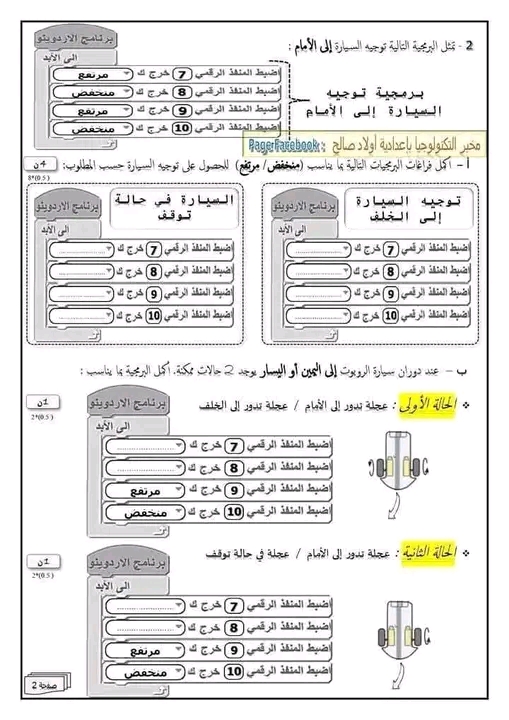 2 - تمثل البرمجية التالية توجيه السيارة إلى الأمام :
برنامج الاردوينو
الى الأبد
اضبط المنفذ الرقمي 7 خرج ك مرتفع
اضبط المنفذ الرقمي 8 خرج ك منخفض
اضبط المنفذ الرقمي 9 خرج ك مرتفع
اضبط المنفذ الرقمي 10 خرج ك منخفض
برمجية توجيه
السيارة إلى الأمام
مخبر التكنولوجيا بإعدادية أولاد صالح : PagerFacebook
أ – اكمل فراغات البرمجيات التالية بما يناسب (منخفض/ مرتفع) للحصول على توجيه السيارة حسب المطلوب:
4ن
8*(0.5)
توجيه السيارة
إلى الخلف
برنامج الاردوينو
الى الأبد
اضبط المنفذ الرقمي 7 خرج ك ............
اضبط المنفذ الرقمي 8 خرج ك ............
اضبط المنفذ الرقمي 9 خرج ك ............
اضبط المنفذ الرقمي 10 خرج ك ............
السيارة في حالة
توقف
برنامج الاردوينو
الى الأبد
اضبط المنفذ الرقمي 7 خرج ك ............
اضبط المنفذ الرقمي 8 خرج ك ............
اضبط المنفذ الرقمي 9 خرج ك ............
اضبط المنفذ الرقمي 10 خرج ك ............
ب – عند دوران سيارة الروبوت إلى اليمين أو اليسار يوجد 2 حالات ممكنة. اكمل البرمجية بما يناسب :
الحالة الأولى : عجلة تدور إلى الأمام / عجلة تدور إلى الخلف
1ن
2*(0.5)
برنامج الاردوينو
الى الأبد
اضبط المنفذ الرقمي 7 خرج ك ............
اضبط المنفذ الرقمي 8 خرج ك ............
اضبط المنفذ الرقمي 9 خرج ك مرتفع
اضبط المنفذ الرقمي 10 خرج ك منخفض
الحالة الثانية : عجلة تدور إلى الأمام / عجلة في حالة توقف
1ن
2*(0.5)
برنامج الاردوينو
الى الأبد
اضبط المنفذ الرقمي 7 خرج ك ............
اضبط المنفذ الرقمي 8 خرج ك ............
اضبط المنفذ الرقمي 9 خرج ك مرتفع
اضبط المنفذ الرقمي 10 خرج ك منخفض
صفحة 2